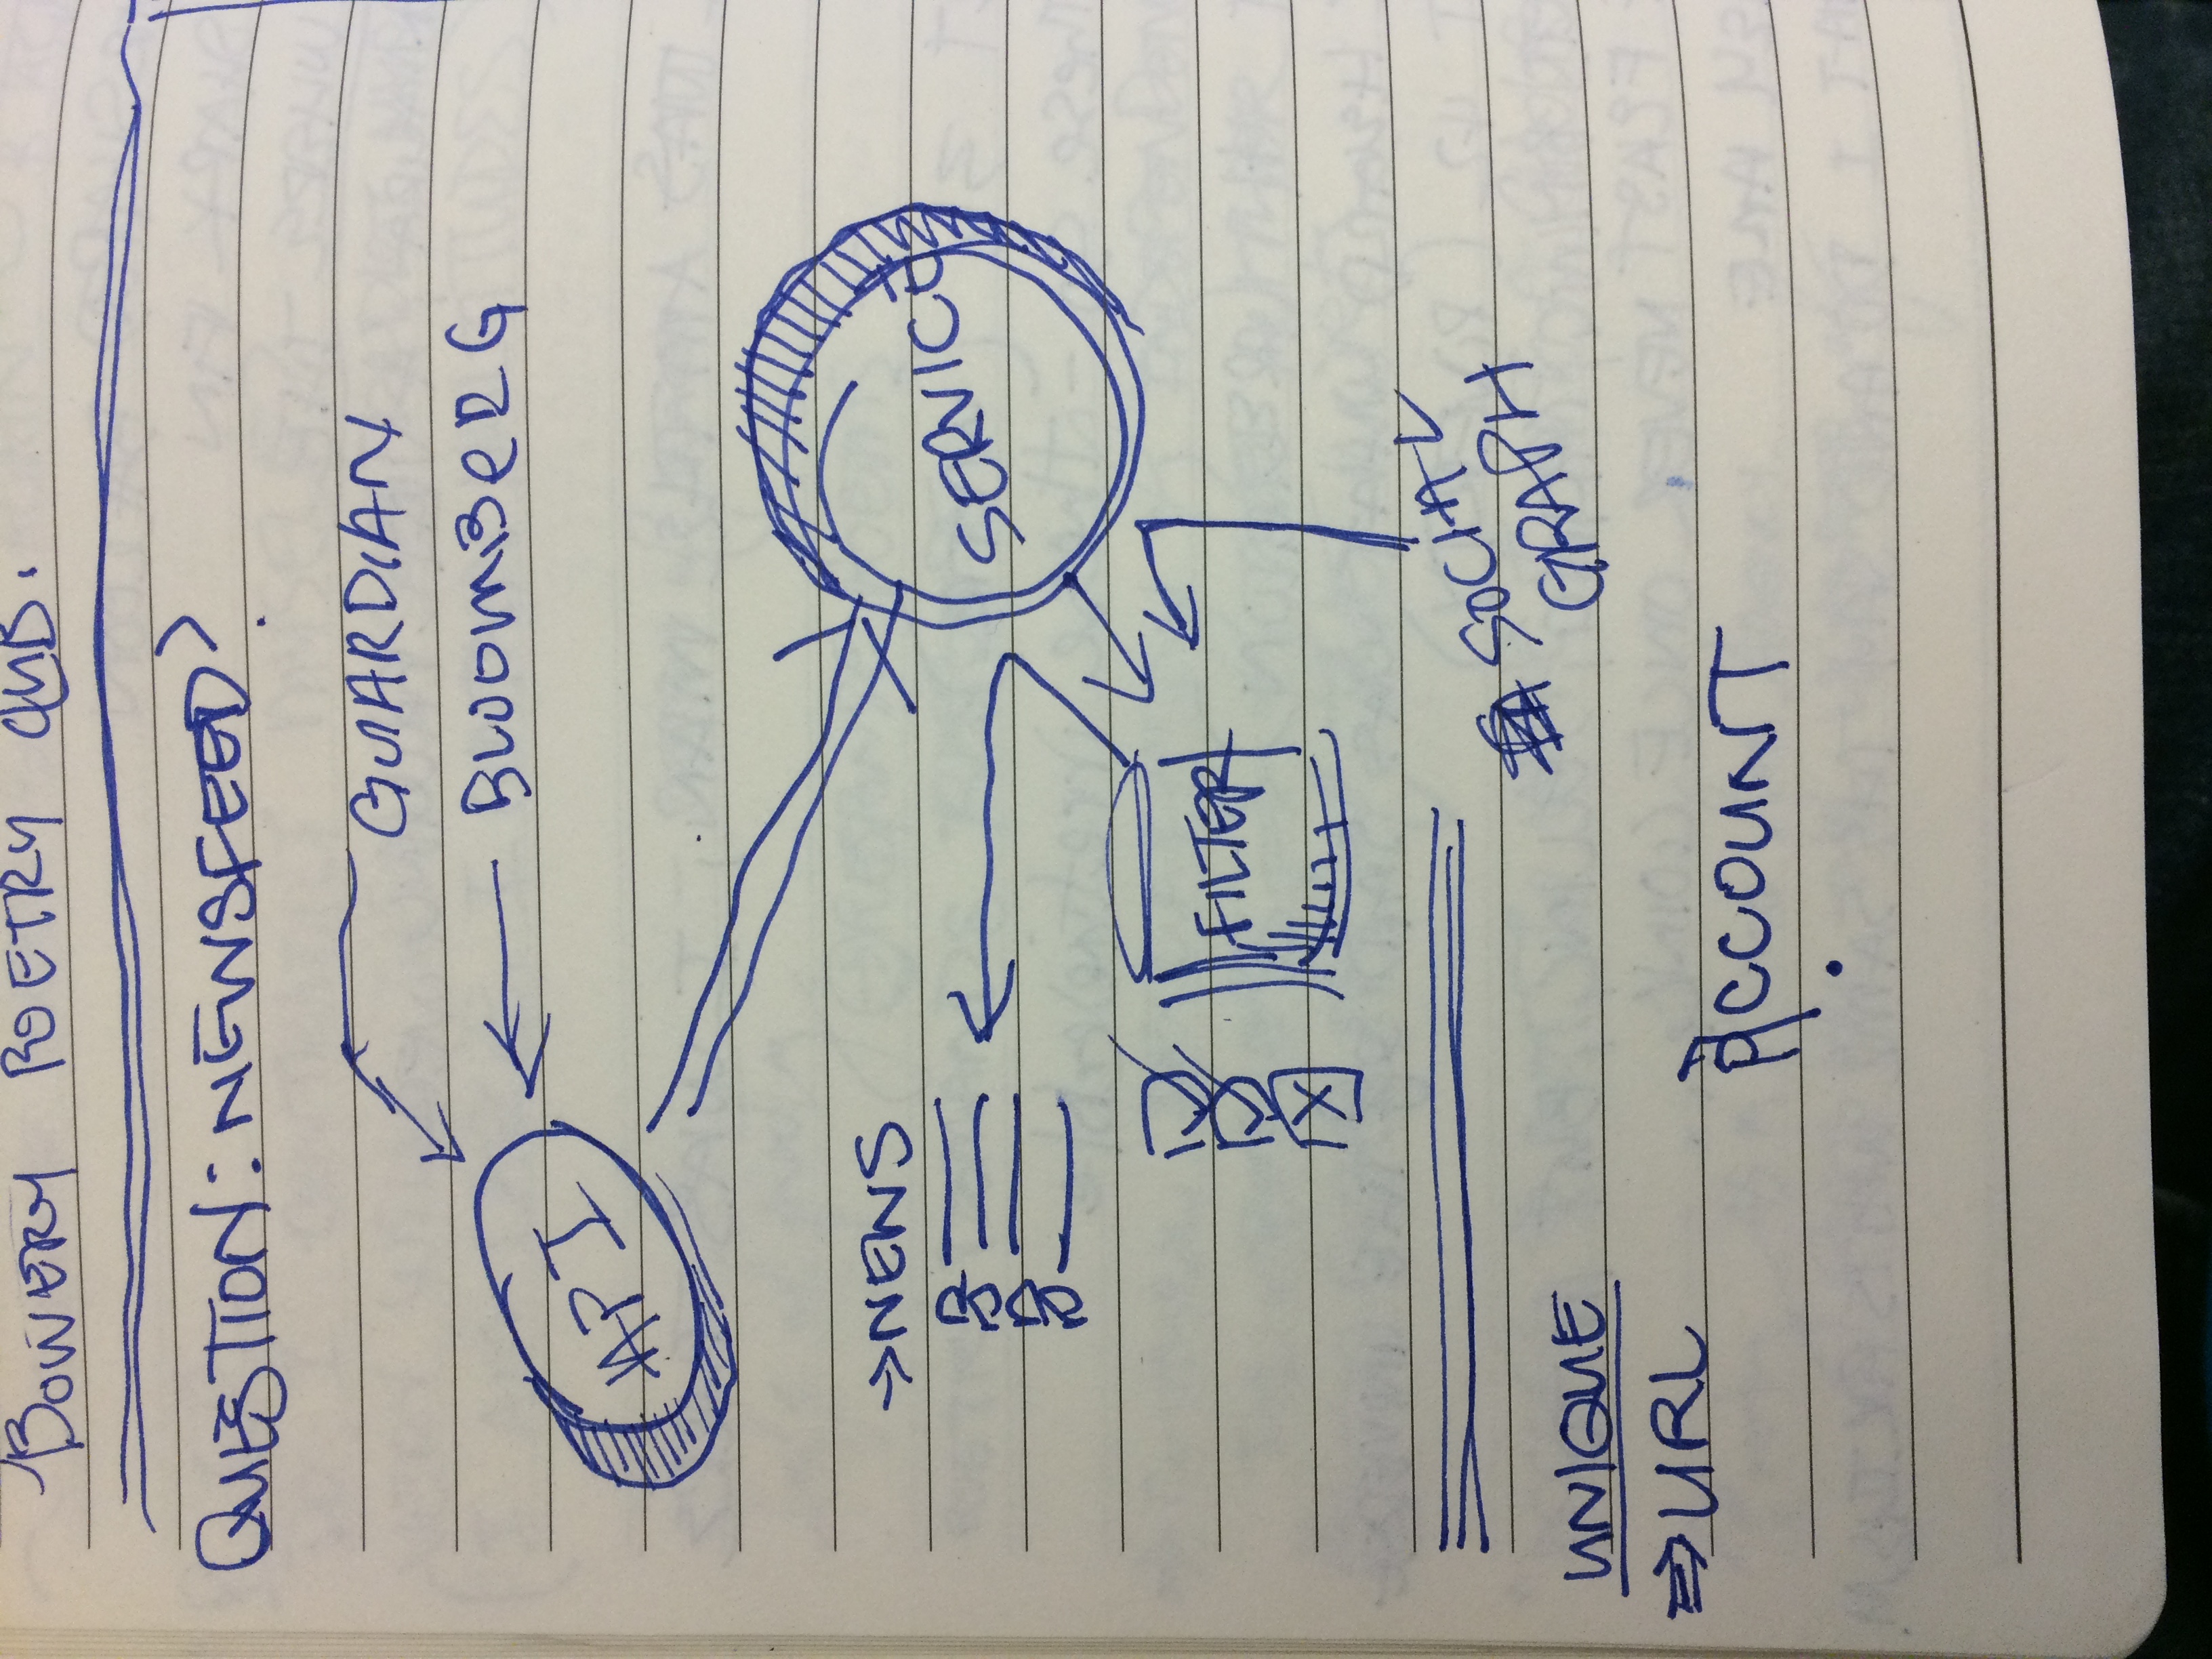 BOWERY POETRY CLUB.
QUESTION: NEWSFEED?
GUARDIAN
BLOOMBERG
API
SERVICE
→NEWS
FILTER
SOCIAL
GRAPH
UNIQUE
⇒URL
ACCOUNT